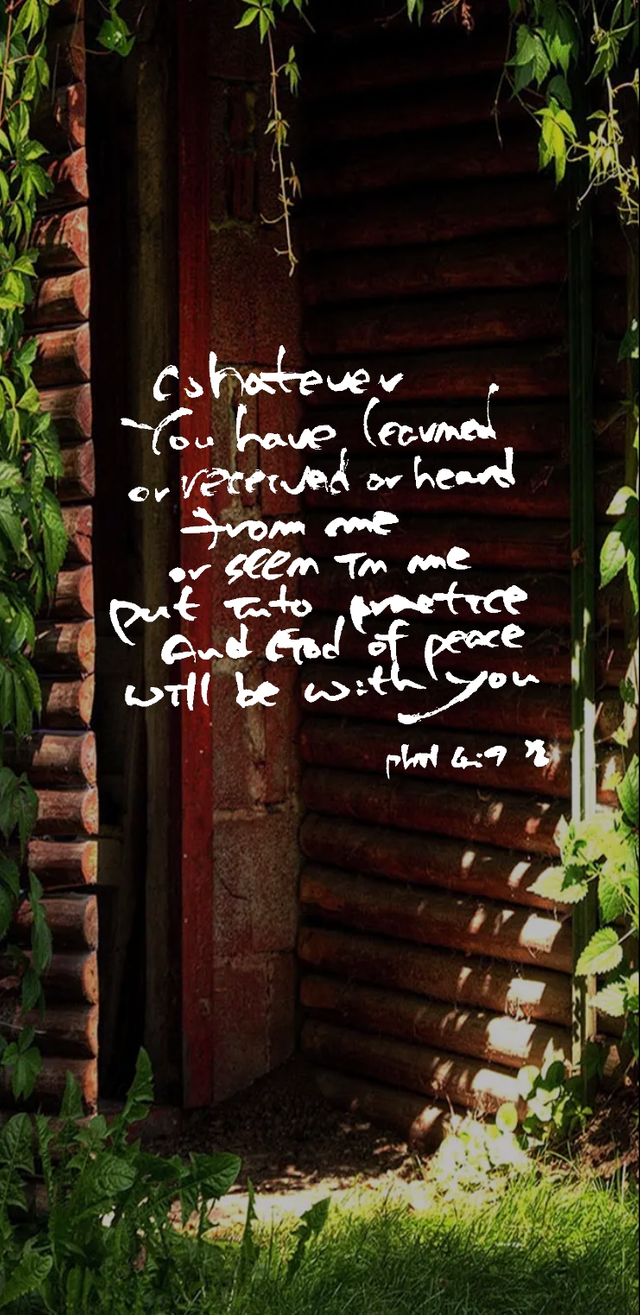 whatever
You have learned
or received or heard
from me
or seen in me
put into practice
And God of peace
will be with you
phil 4:9